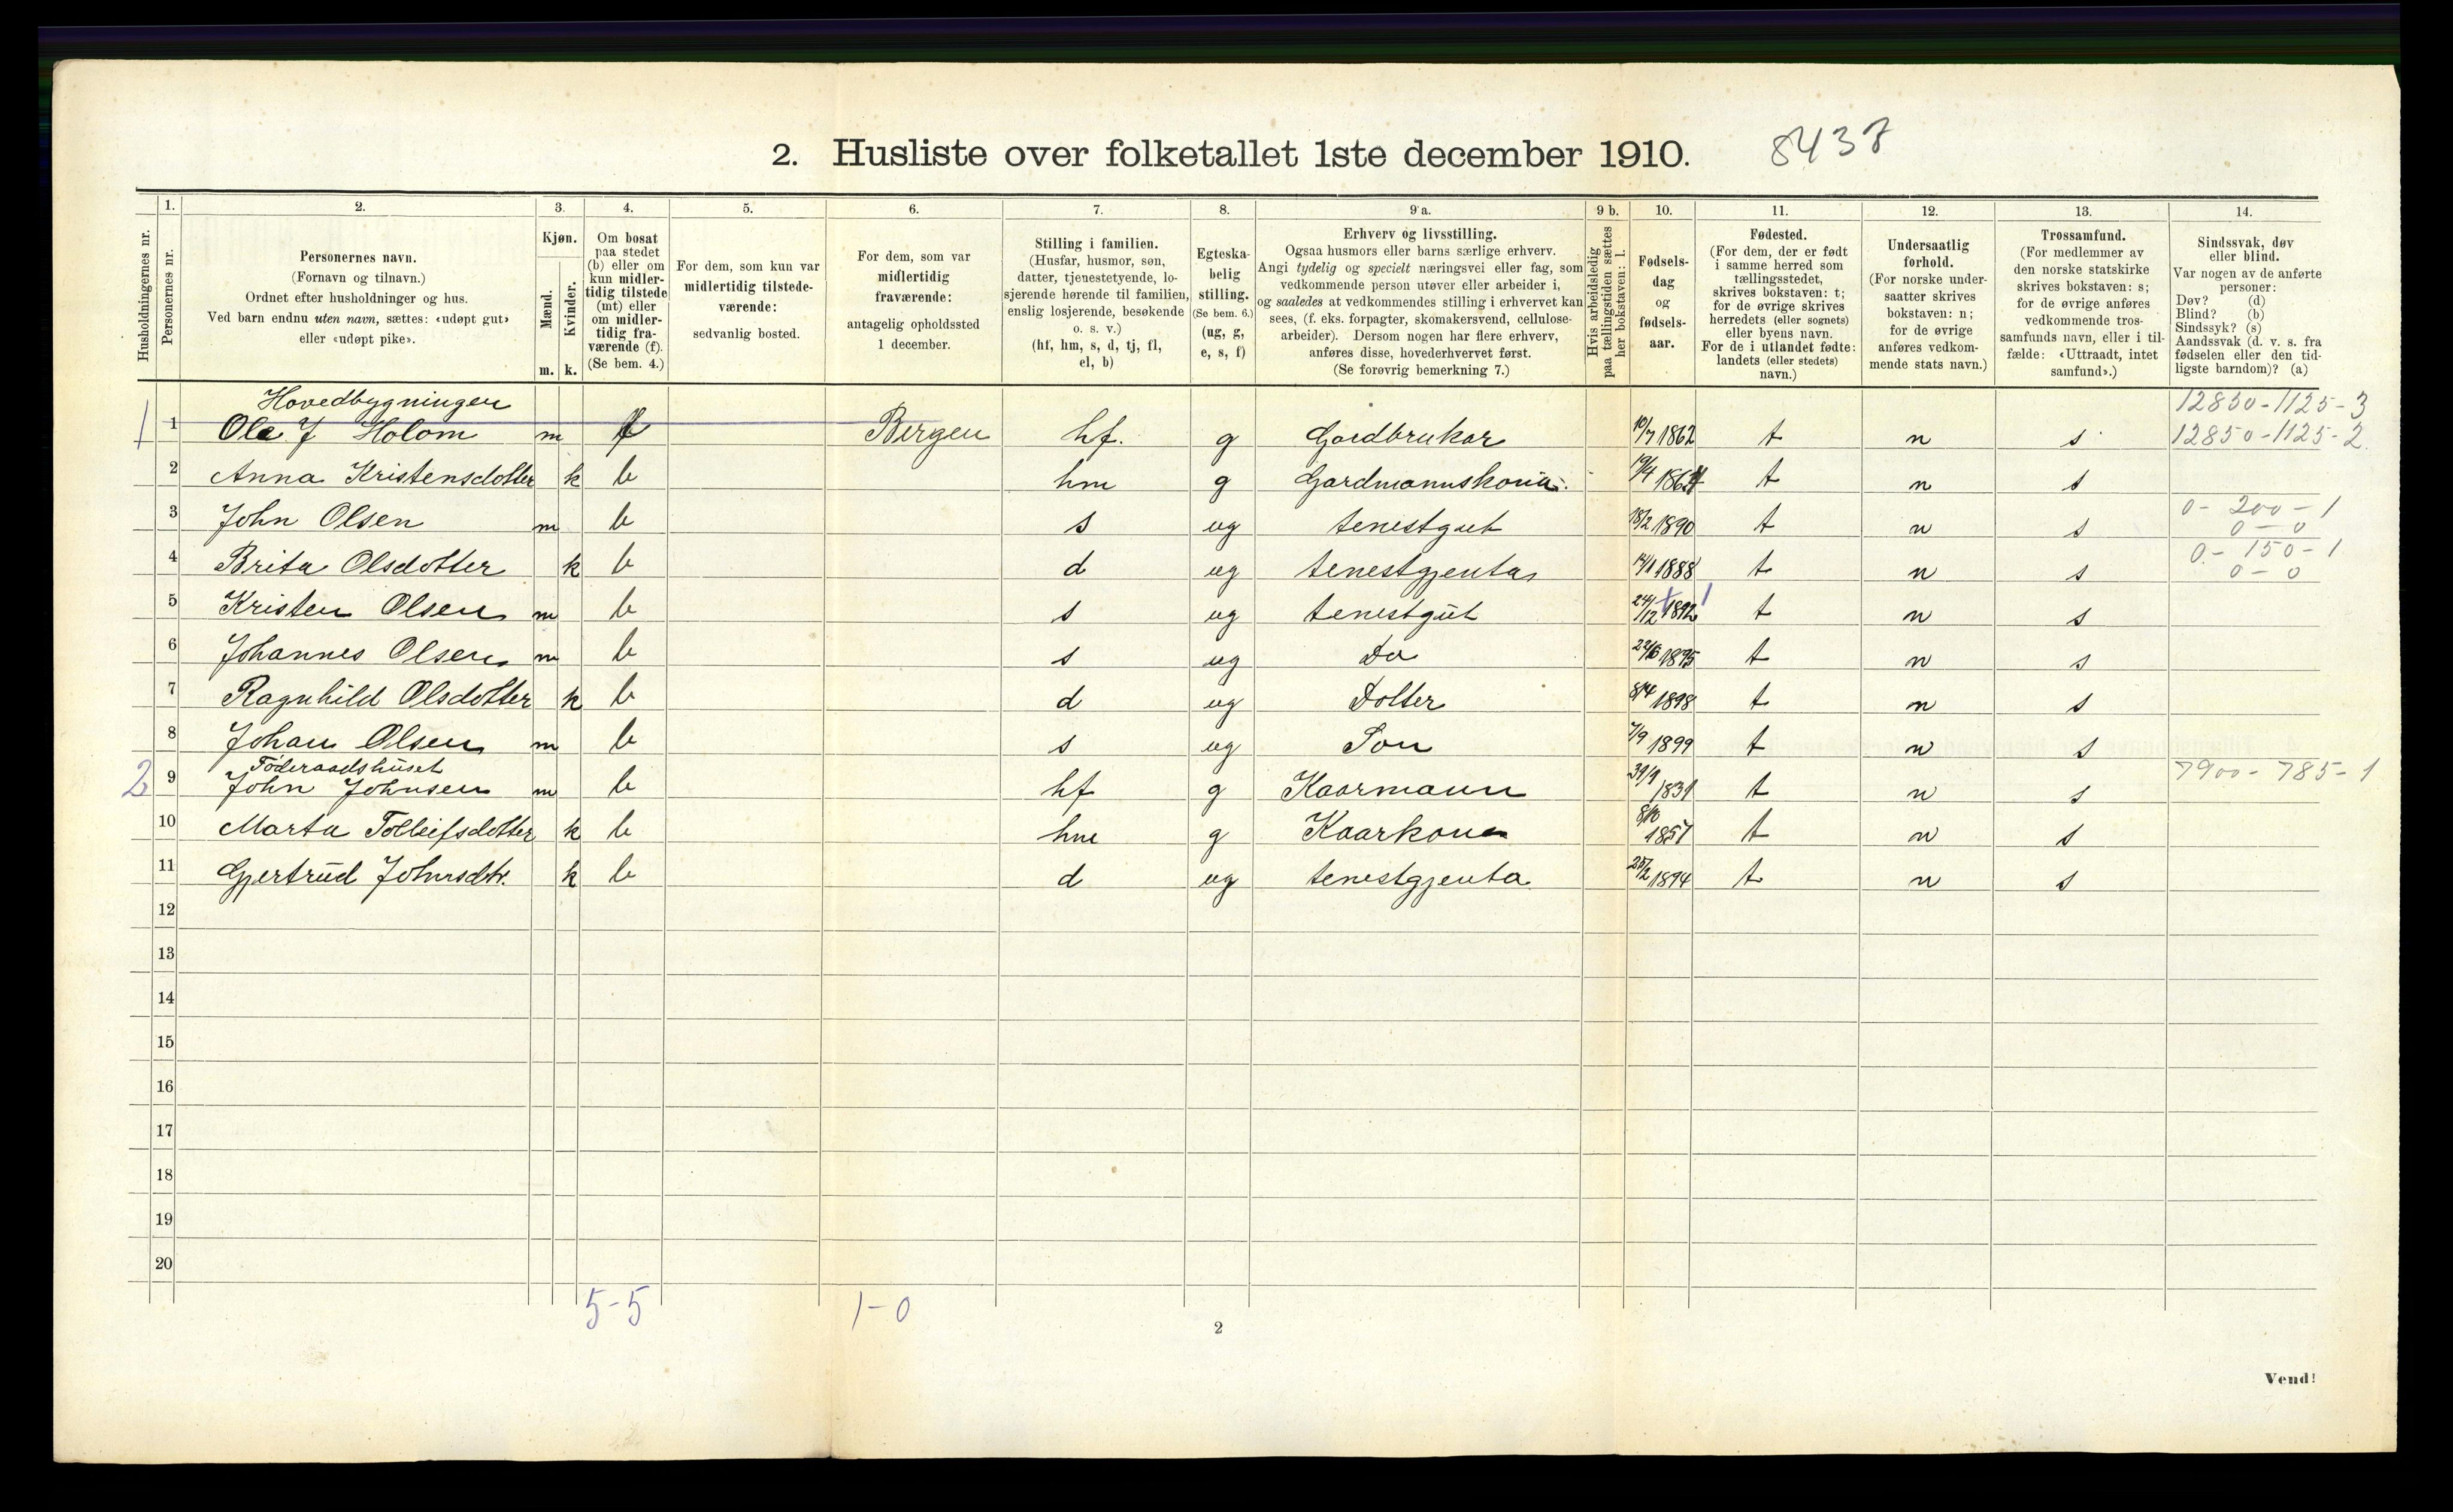 2. Husliste over folketallet 1ste december 1910. 8437
1. 2. 3. 4. 5. 6. 7. 8. 9 a. 9 b. 10. 11. 12. 13. 14.
Husholdningernes nr.
Personernes nr.
Personernes navn.
(Fornavn og tilnavn.)
Ordnet efter husholdninger og hus.
Ved barn endnu uten navn, sættes: «udøpt gut»
eller «udøpt pike».
Kjøn.
Mænd.
Kvinder.
m. k.
Om bosat
paa stedet
(b) eller om
kun midler-
tidig tilstede
(mt) eller
om midler-
tidig fra-
værende (f).
(Se bem. 4.)
For dem, som kun var
midlertidig tilstede-
værende:
sedvanlig bosted.
For dem, som var
midlertidig
fraværende:
antagelig opholdssted
1 december.
Stilling i familien.
(Husfar, husmor, søn,
datter, tjenestetyende, lo-
sjerende hørende til familien,
enslig losjerende, besøkende
o. s. v.)
(hf, hm, s, d, tj, fl,
el, b)
Egteska-
belig
stilling.
(Se bem. 6.)
(ug, g,
e, s, f)
Erhverv og livsstilling.
Ogsaa husmors eller barns særlige erhverv.
Angi tydelig og specielt næringsvei eller fag, som
vedkommende person utøver eller arbeider i,
og saaledes at vedkommendes stilling i erhvervet kan
sees, (f. eks. forpagter, skomakersvend, cellulose-
arbeider). Dersom nogen har flere erhverv,
anføres disse, hovederhvervet først.
(Se forøvrig bemerkning 7.)
Hvis arbeidsledig
paa tællingstiden sættes
her bokstaven: l.
Fødsels-
dag
og
fødsels-
aar.
Fødested.
(For dem, der er født
i samme herred som
tællingsstedet,
skrives bokstaven: t;
for de øvrige skrives
herredets (eller sognets)
eller byens navn.
For de i utlandet fødte:
landets (eller stedets)
navn.)
Undersaatlig
forhold.
(For norske under-
saatter skrives
bokstaven: n;
for de øvrige
anføres vedkom-
mende stats navn.)
Trossamfund.
(For medlemmer av
den norske statskirke
skrives bokstaven: s;
for de øvrige anføres
vedkommende tros-
samfunds navn, eller i til-
fælde: «Uttraadt, intet
samfund».)
Sindssvak, døv
eller blind.
Var nogen av de anførte
personer:
Døv? (d)
Blind? (b)
Sindssyk? (s)
Aandssvak (d. v. s. fra
fødselen eller den tid-
ligste barndom)? (a)
Hovedbygningen 12850-1125-3
1 1 Ole J Holom m f Bergen hf. g Gardbrukar 10/7 1862 t n s 12850-1125-2
2 Anna Kristensdotter k b hm g Gardmannskona 19/4 1864 t n s
0- 200-1
3 John Olsen m b s ug tenestgut 18/2 1890 t n s 0-0
0- 150-1
4 Brita Olsdotter k b d ug tenestgjenta 14/1 1888 t n s 0-0
5 Kristen Olsen m b s ug tenestgut 24/12 1892 t n s
6 Johannes Olsen m b s ug Do 22/6 1895 t n s
7 Ragnhild Olsdotter k b d ug Dotter 8/4 1898 t n s
8 Johan Olsen m b s ug Son 7/9 1899 t n s
Föderaadshuset 7900- 785-1
2 9 John Johnsen m b hf g Kaarmann 1831 t n s
10 Marta Tolleifsdotter k b hm g Kaarkona 8/10 1857 t n s
11 Gjertrud Johnsdtr. k b d ug tenestgjenta 25/2 1894 t n s
12
13
14
15
16
17
18
19
20
5-5 1-0
2
Vend!